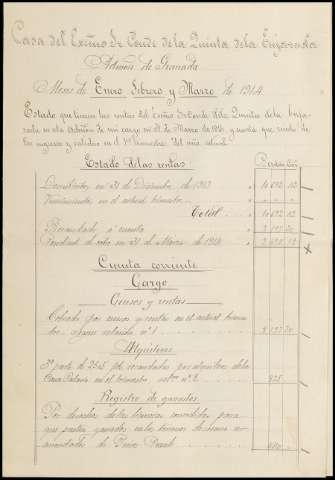 Casa del Exmo Sr Conde de la Quinta de la Enjarada
Admon de Granada
Meses de Enero Febrero y Marzo de 1914
Estado que tienen las rentas del Exmo Sr Conde de la Quinta de la Enja-
rada en esta Admon de mi cargo en 31 de Marzo de 1914, y cuenta que rinde de
los ingresos y salidas en el 1er trimestre del año actual
Estado de las rentas
Pesetas Cts
Descubiertos en 31 de Diciembre de 1913
Vencimientos en el actual trimestre
Total
Recaudado a cuenta
Pendiente de cobro en 31 de Marzo de 1914
Cuenta corriente
Cargo
Censos y rentas
Cobrado por censos y rentas en el actual trimes-
tre segun relacion nº 1
Alquileres
3ª parte de 2545 pts recaudadas por alquileres de la
Casa Palacio en el trimestre nº 2
Registro de ganados
Por derechos de las licencias concedidas para
que pasten ganados en los terrenos de